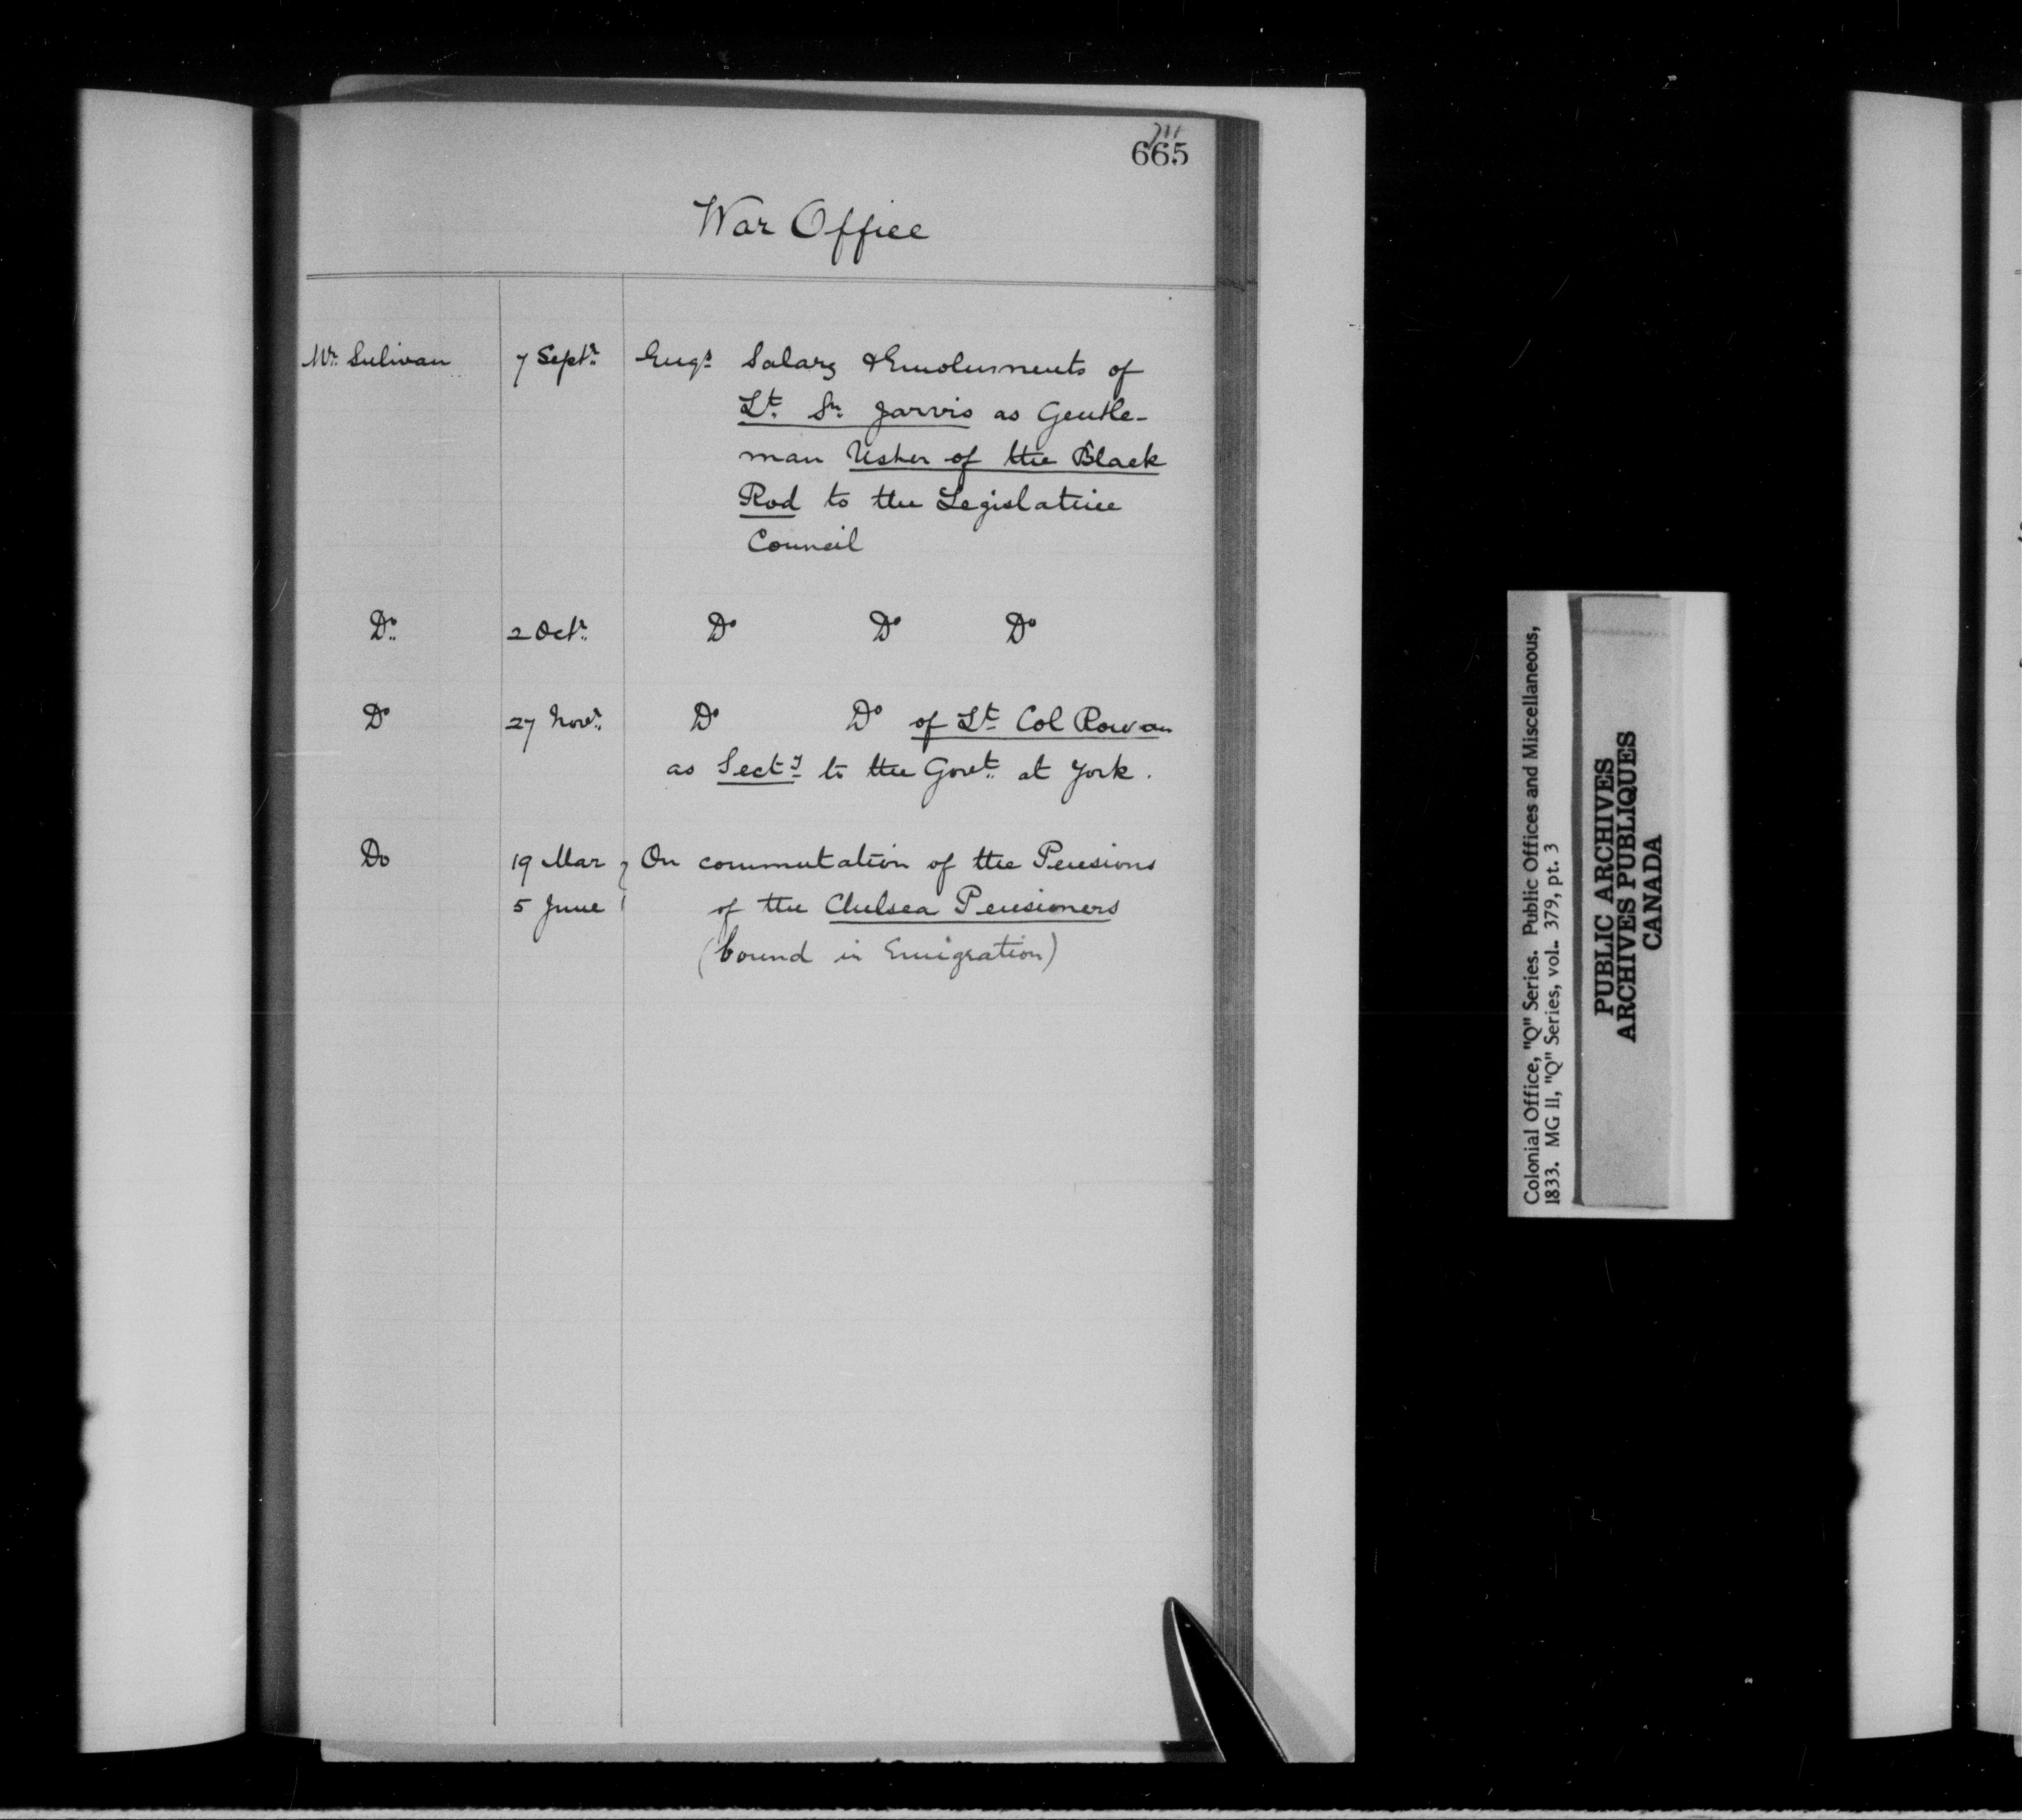 711
665
War Office
Mr. Sulivan 7 Septr. Engs Salary & Emoluments of
Lt. Sn. Jarvis as Gentle-
man Usher of the Black
Rod to the Legislative
Council
Do. 2 Octr. Do Do Do
Do 27 Novr. Do Do of Lt Col Rowan
as Secty to the Govt. at York.
Do 19 Mar } On commutation of the Pensions
5 June of the Chelsea Pensioners
(bound in Emigration)
Colonial Office, "Q" Series. Public Offices and Miscellaneous,
1833. MG 11, "Q" Series, vol. 379, pt. 3
PUBLIC ARCHIVES
ARCHIVES PUBLIQUES
CANADA